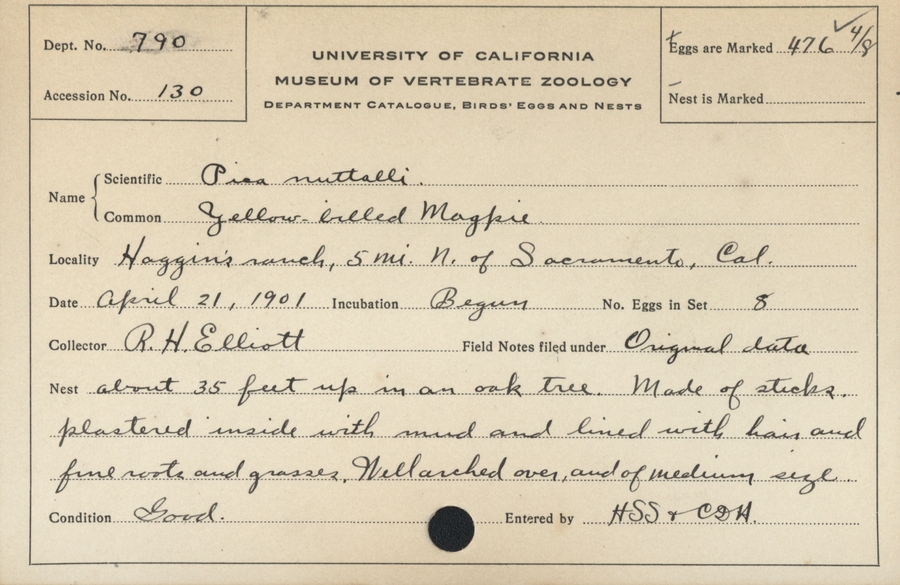 Dept. No. 790
Accession No. 130
UNIVERSITY OF CALIFORNIA
MUSEUM OF VERTEBRATE ZOOLOGY
DEPARTMENT CATALOGUE, BIRDS' EGGS AND NESTS
Eggs are Marked 476 4/8
Nest is Marked
Name
Scientific Pica nuttalli.
Common Yellow-billed Magpie
Locality Haggin's ranch, 5 mi. N. of Sacramento, Cal.
Date April 21, 1901 Incubation Begun No. Eggs in Set 8
Collector R. H. Elliott Field Notes filed under Original data
Nest about 35 feet up in an oak tree. Made of sticks.
plastered inside with mud and lined with hair and
fine roots and grasses. Well arched over, and of medium size.
Condition Good. Entered by HSS & CDH.